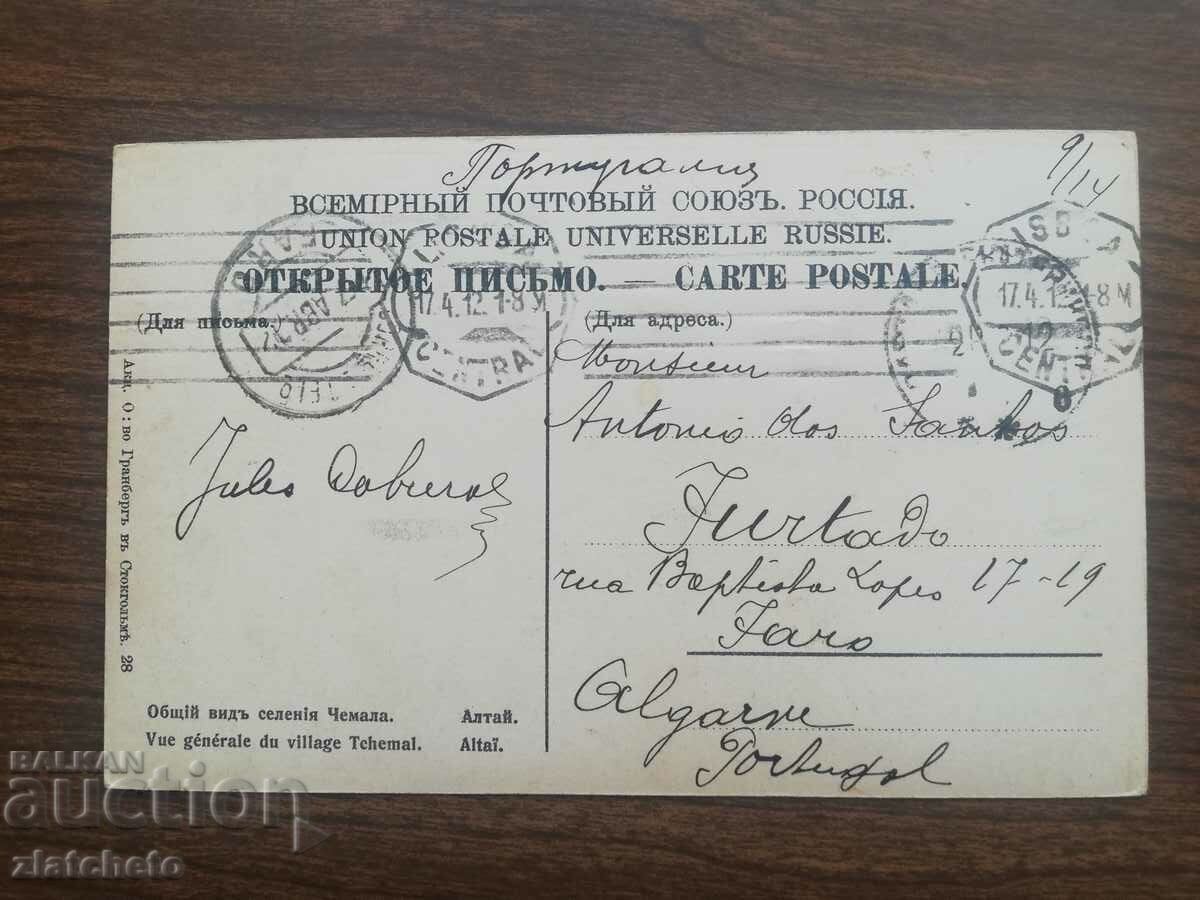 Португалия
9/14
ВСЕМІРНЫЙ ПОЧТОВЫЙ СОЮЗЪ. РОССІЯ.
UNION POSTALE UNIVERSELLE RUSSIE.
ОТКРЫТОЕ ПИСЬМО. — CARTE POSTALE.
(Для письма.
(Для адреса.)
FARO
17.4.12. 1-8 M
CENTRAL
17.4.12. 1-8 M
CENT
Monsieur
Antonio dos Santos
Furtado
rua Baptista Lopes 17-19
Faro
Algarve
Portugal
Jules
Акц. О:во Гранбергъ въ Стокгольмѣ. 28
Общій видъ селенія Чемала. Алтай.
Vue générale du village Tchemal. Altaï.
BALKAN
auction
zlatcheto